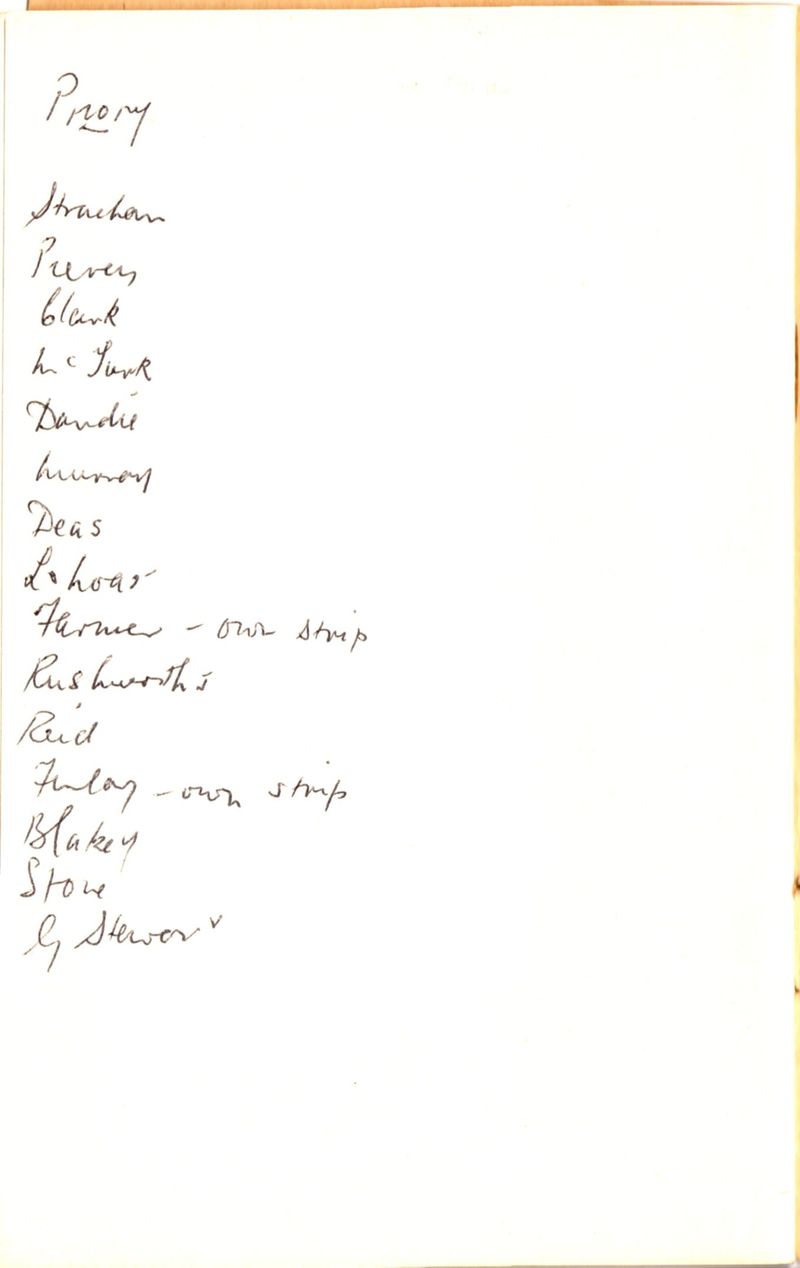 Priory
Strachan
Clark
Mc Turk
Dandie
Murray
Deas
Farmer - own strip
Rushworth's
Reid
Finlay - own strip
Blakey
Stone
G Stewart